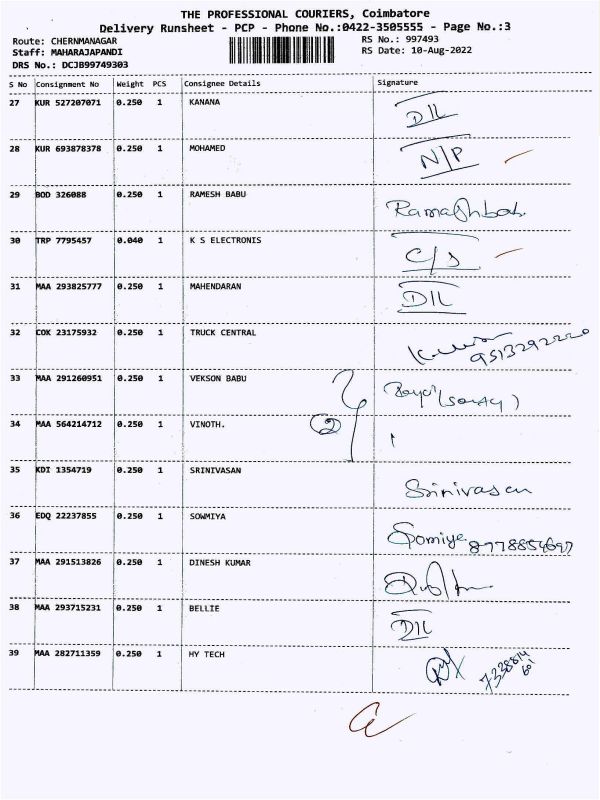 THE PROFESSIONAL COURIERS, Coimbatore
Delivery Runsheet - PCP - Phone No.:0422-3505555 - Page No.:3
Route: CHERNMANAGAR RS No.: 997493
Staff: MAHARAJAPANDI RS Date: 10-Aug-2022
DRS No.: DCJB99749303
S No Consignment No Weight PCS Consignee Details Signature
27 KUR 527207071 0.250 1 KANANA D/L
28 KUR 693878378 0.250 1 MOHAMED N/P
29 BOD 326088 0.250 1 RAMESH BABU
30 TRP 7795457 0.040 1 K S ELECTRONIS C/S
31 MAA 293825777 0.250 1 MAHENDARAN D/L
32 COK 23175932 0.250 1 TRUCK CENTRAL
33 MAA 291260951 0.250 1 VEKSON BABU
34 MAA 564214712 0.250 1 VINOTH. 2
35 KDI 1354719 0.250 1 SRINIVASAN Srinivasan
36 EDQ 22237855 0.250 1 SOWMIYA Somiya
37 MAA 291513826 0.250 1 DINESH KUMAR
38 MAA 293715231 0.250 1 BELLIE D/L
39 MAA 282711359 0.250 1 HY TECH